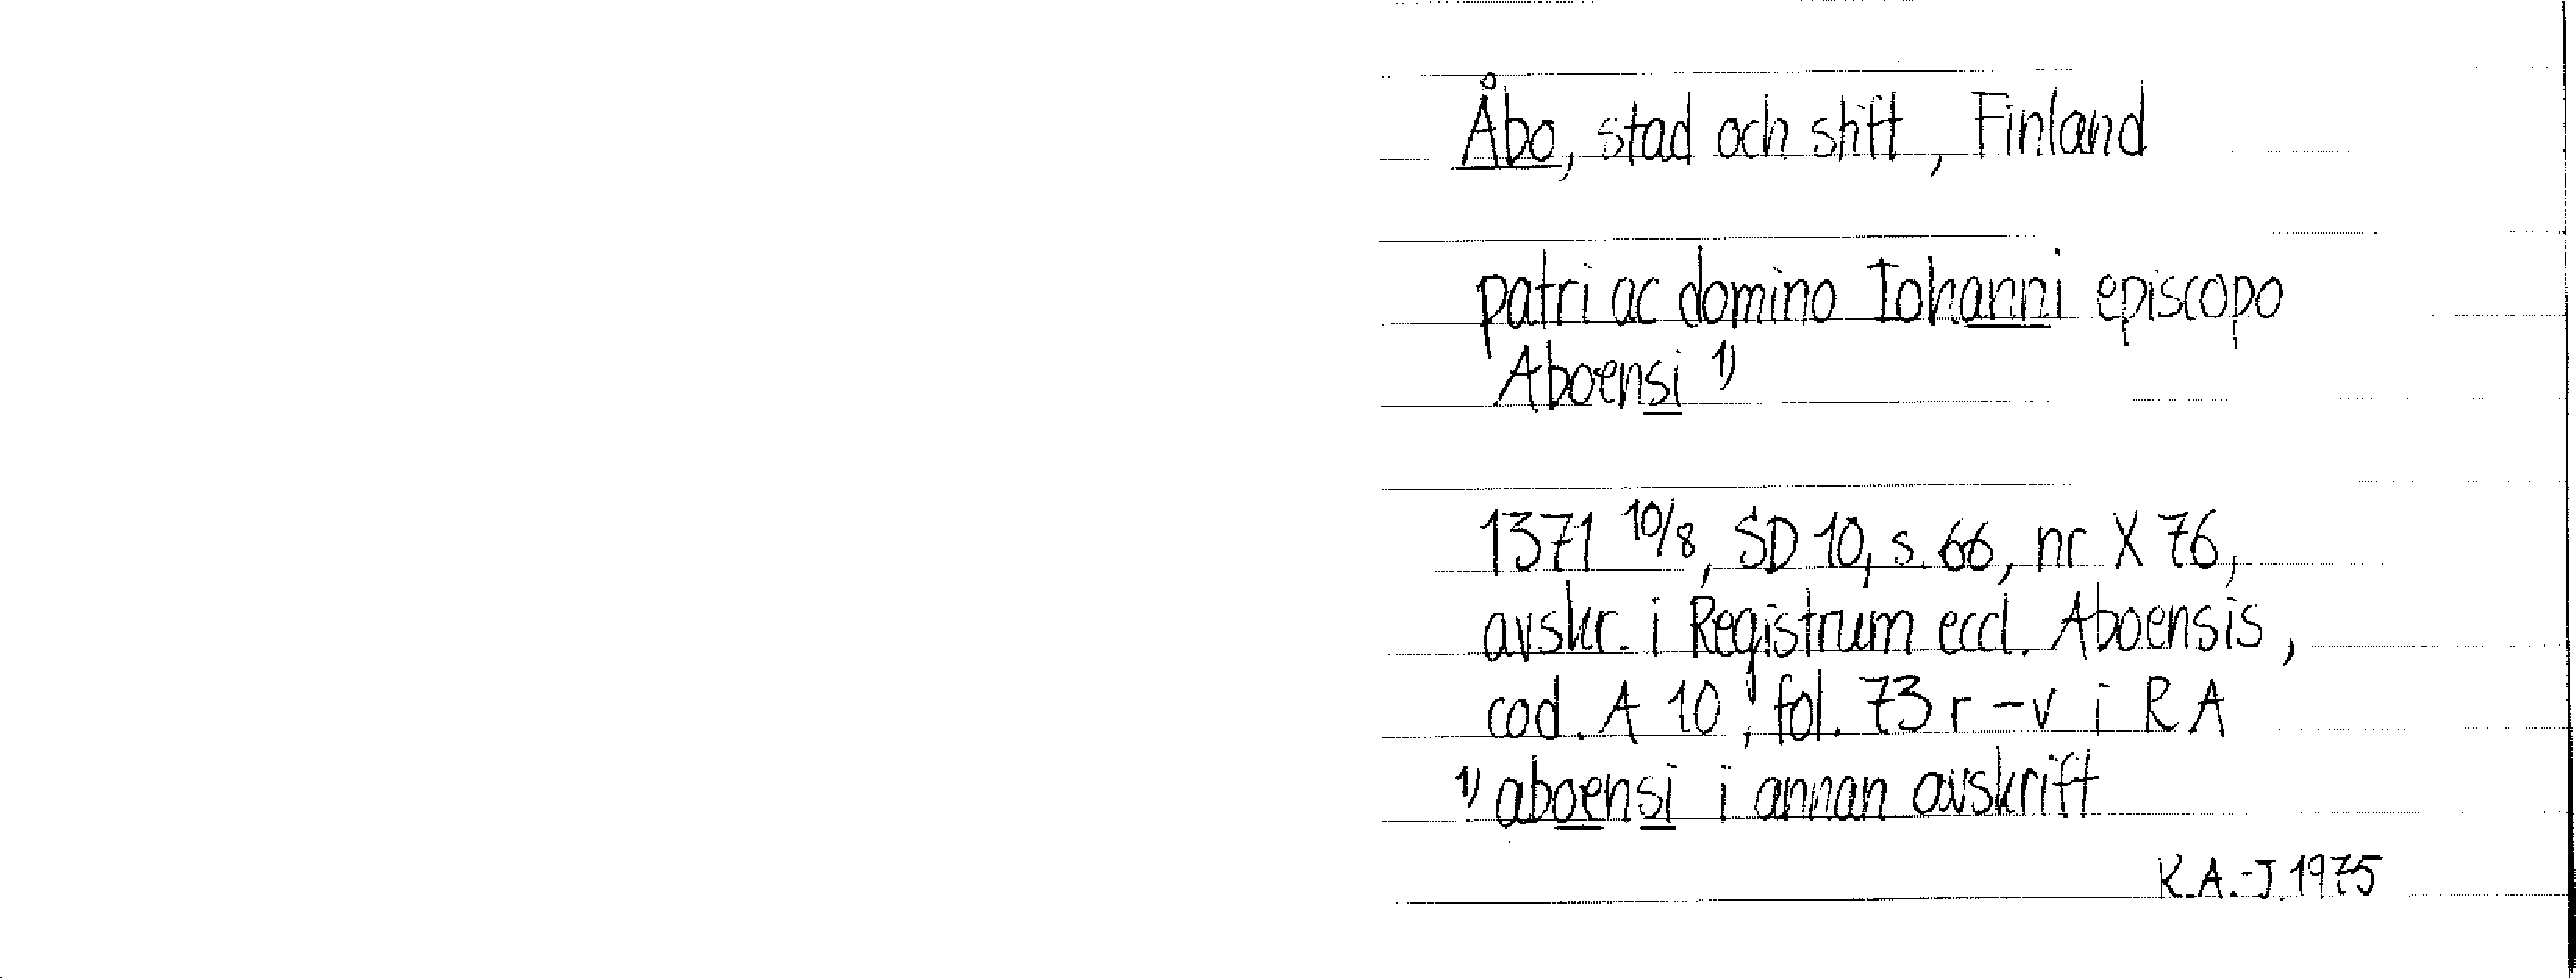 Åbo, stad och stift, Finland
patri ac domino Iohanni episcopo
Aboensi 1)
1371 10/8, SD 10, s. 66, nr X 76,
avskr. i Registrum eccl. Aboensis,
cod. A 10, fol. 73 r - v i RA
1) aboensi i annan avskrift
K.A.-J. 1975